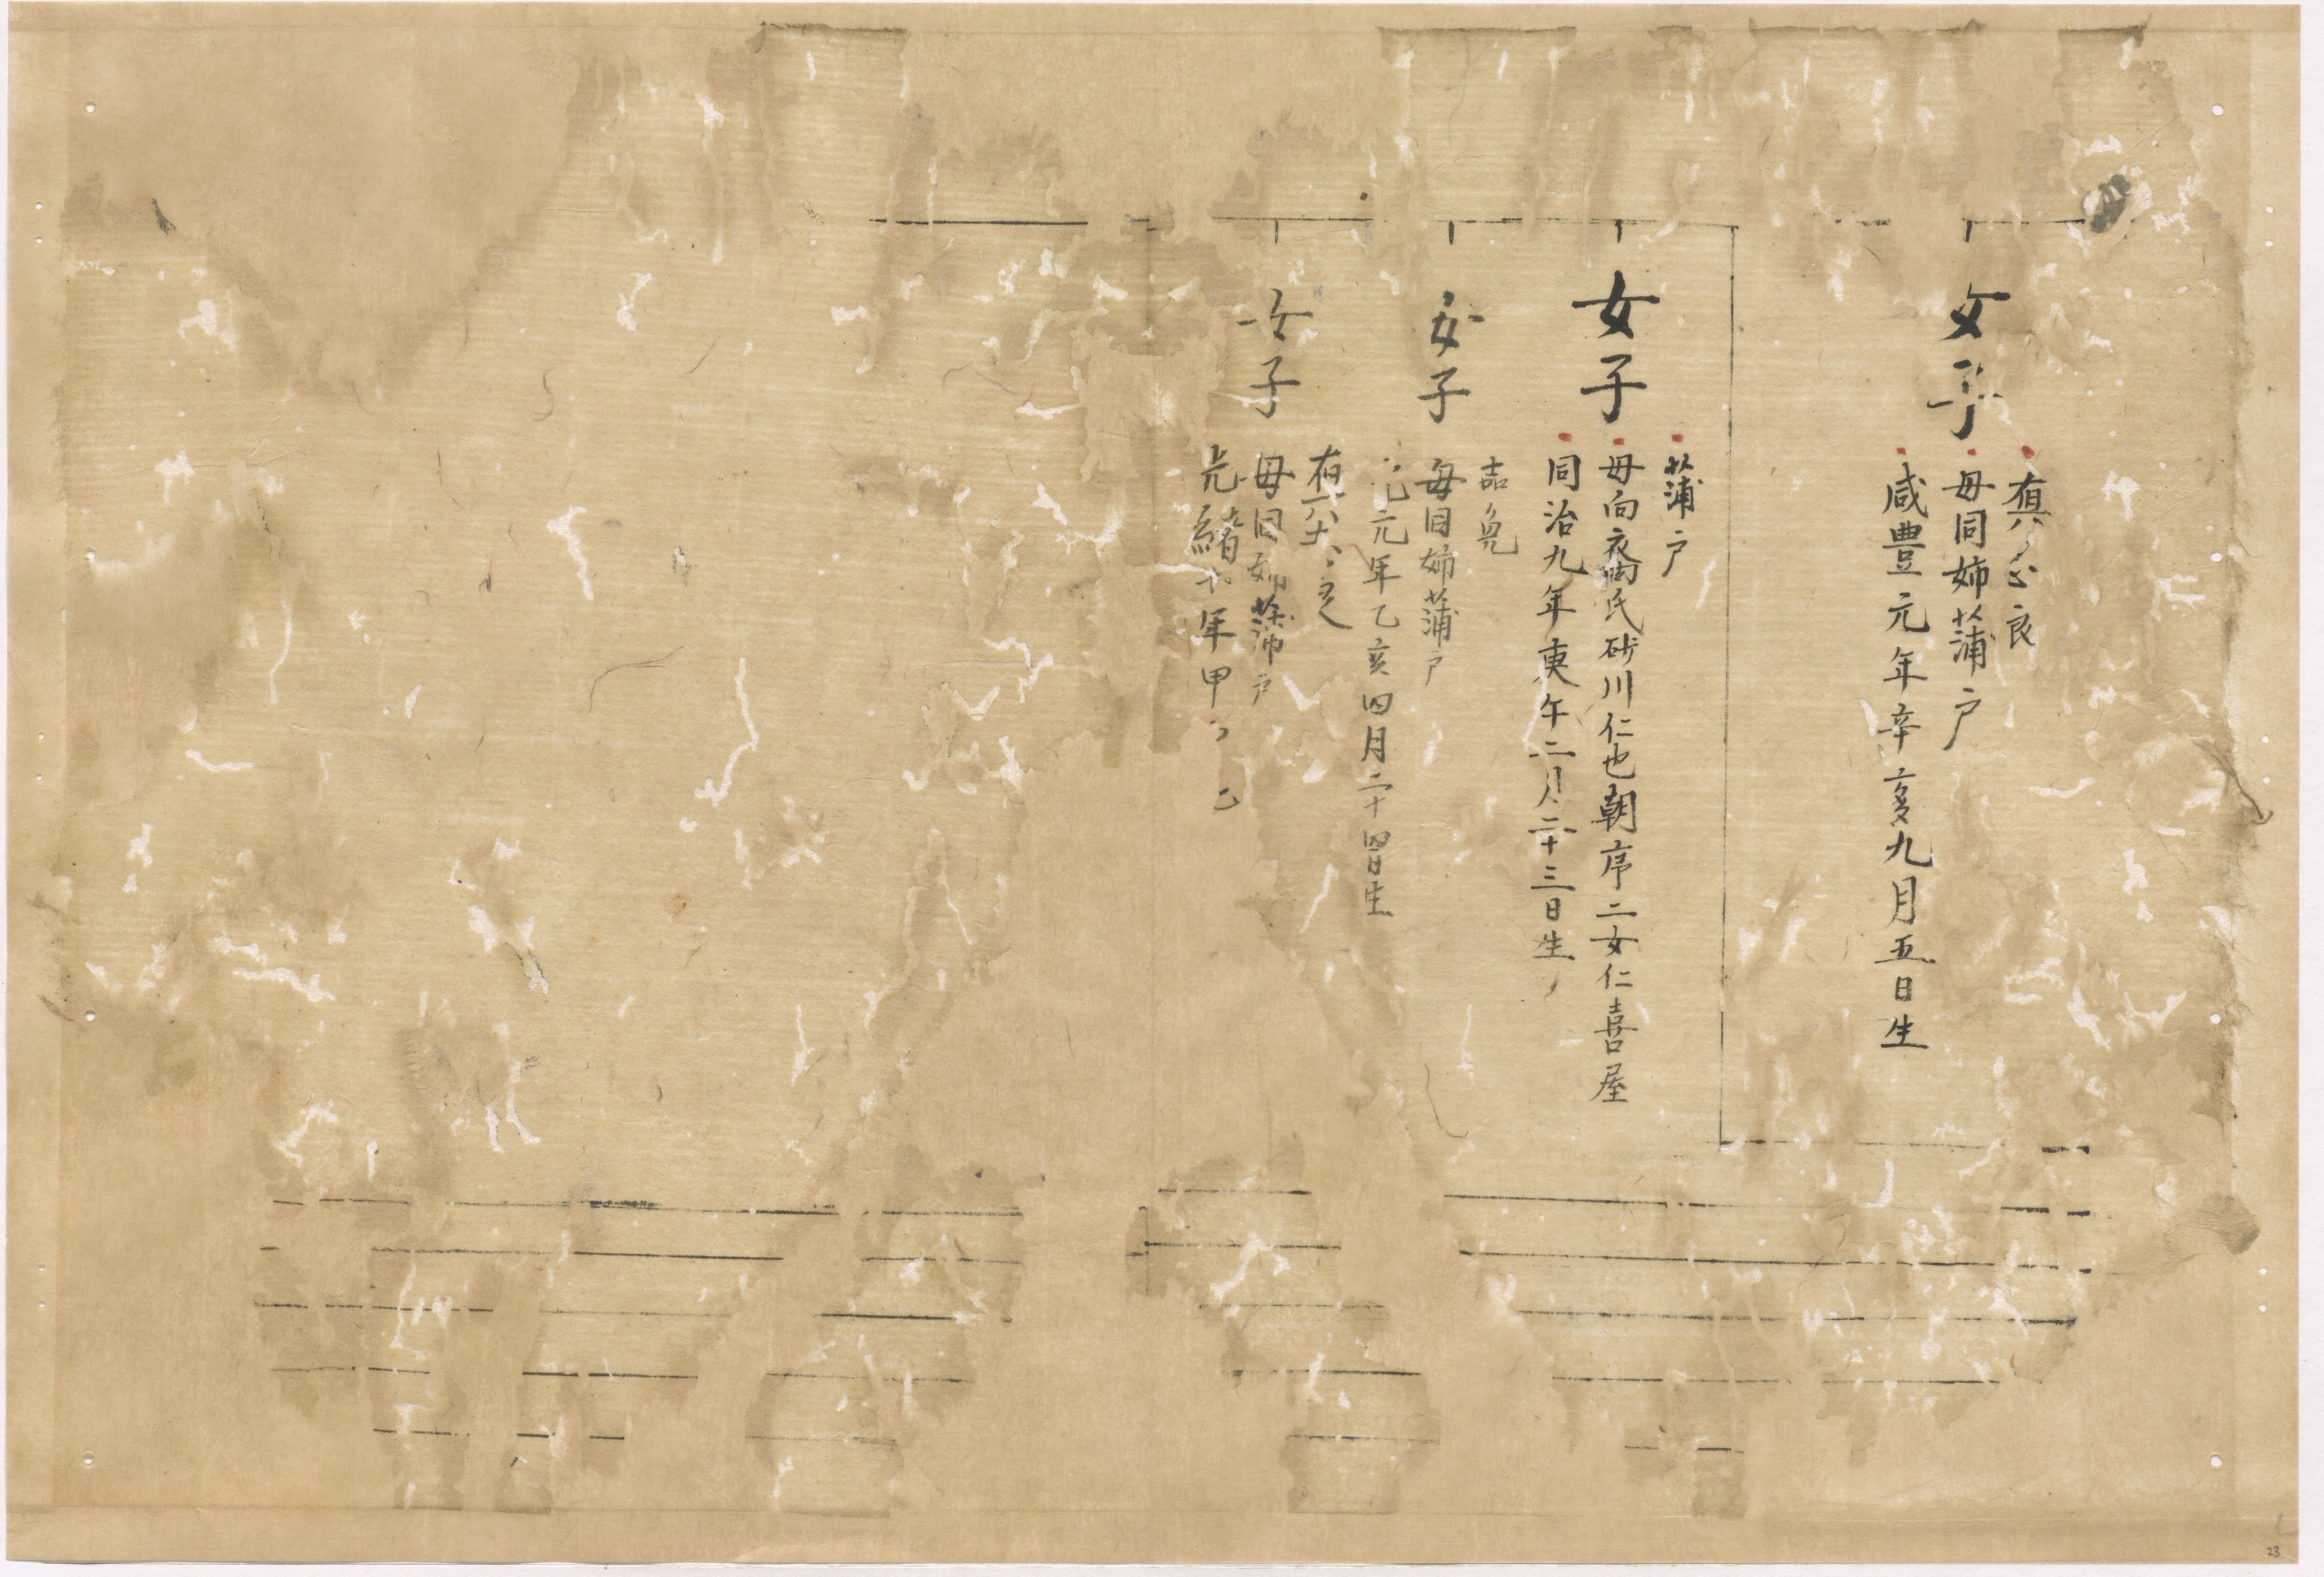 女子
母同姉蒲戸
咸豊元年辛亥九月五日生
女子
蒲戸
母向氏砂川仁也朝序二女仁喜屋
同治九年庚午二月二十三日生
女子
母同姉蒲戸
元年乙亥四月二十四日生
女子
母同姉蒲戸
光緒年甲
23